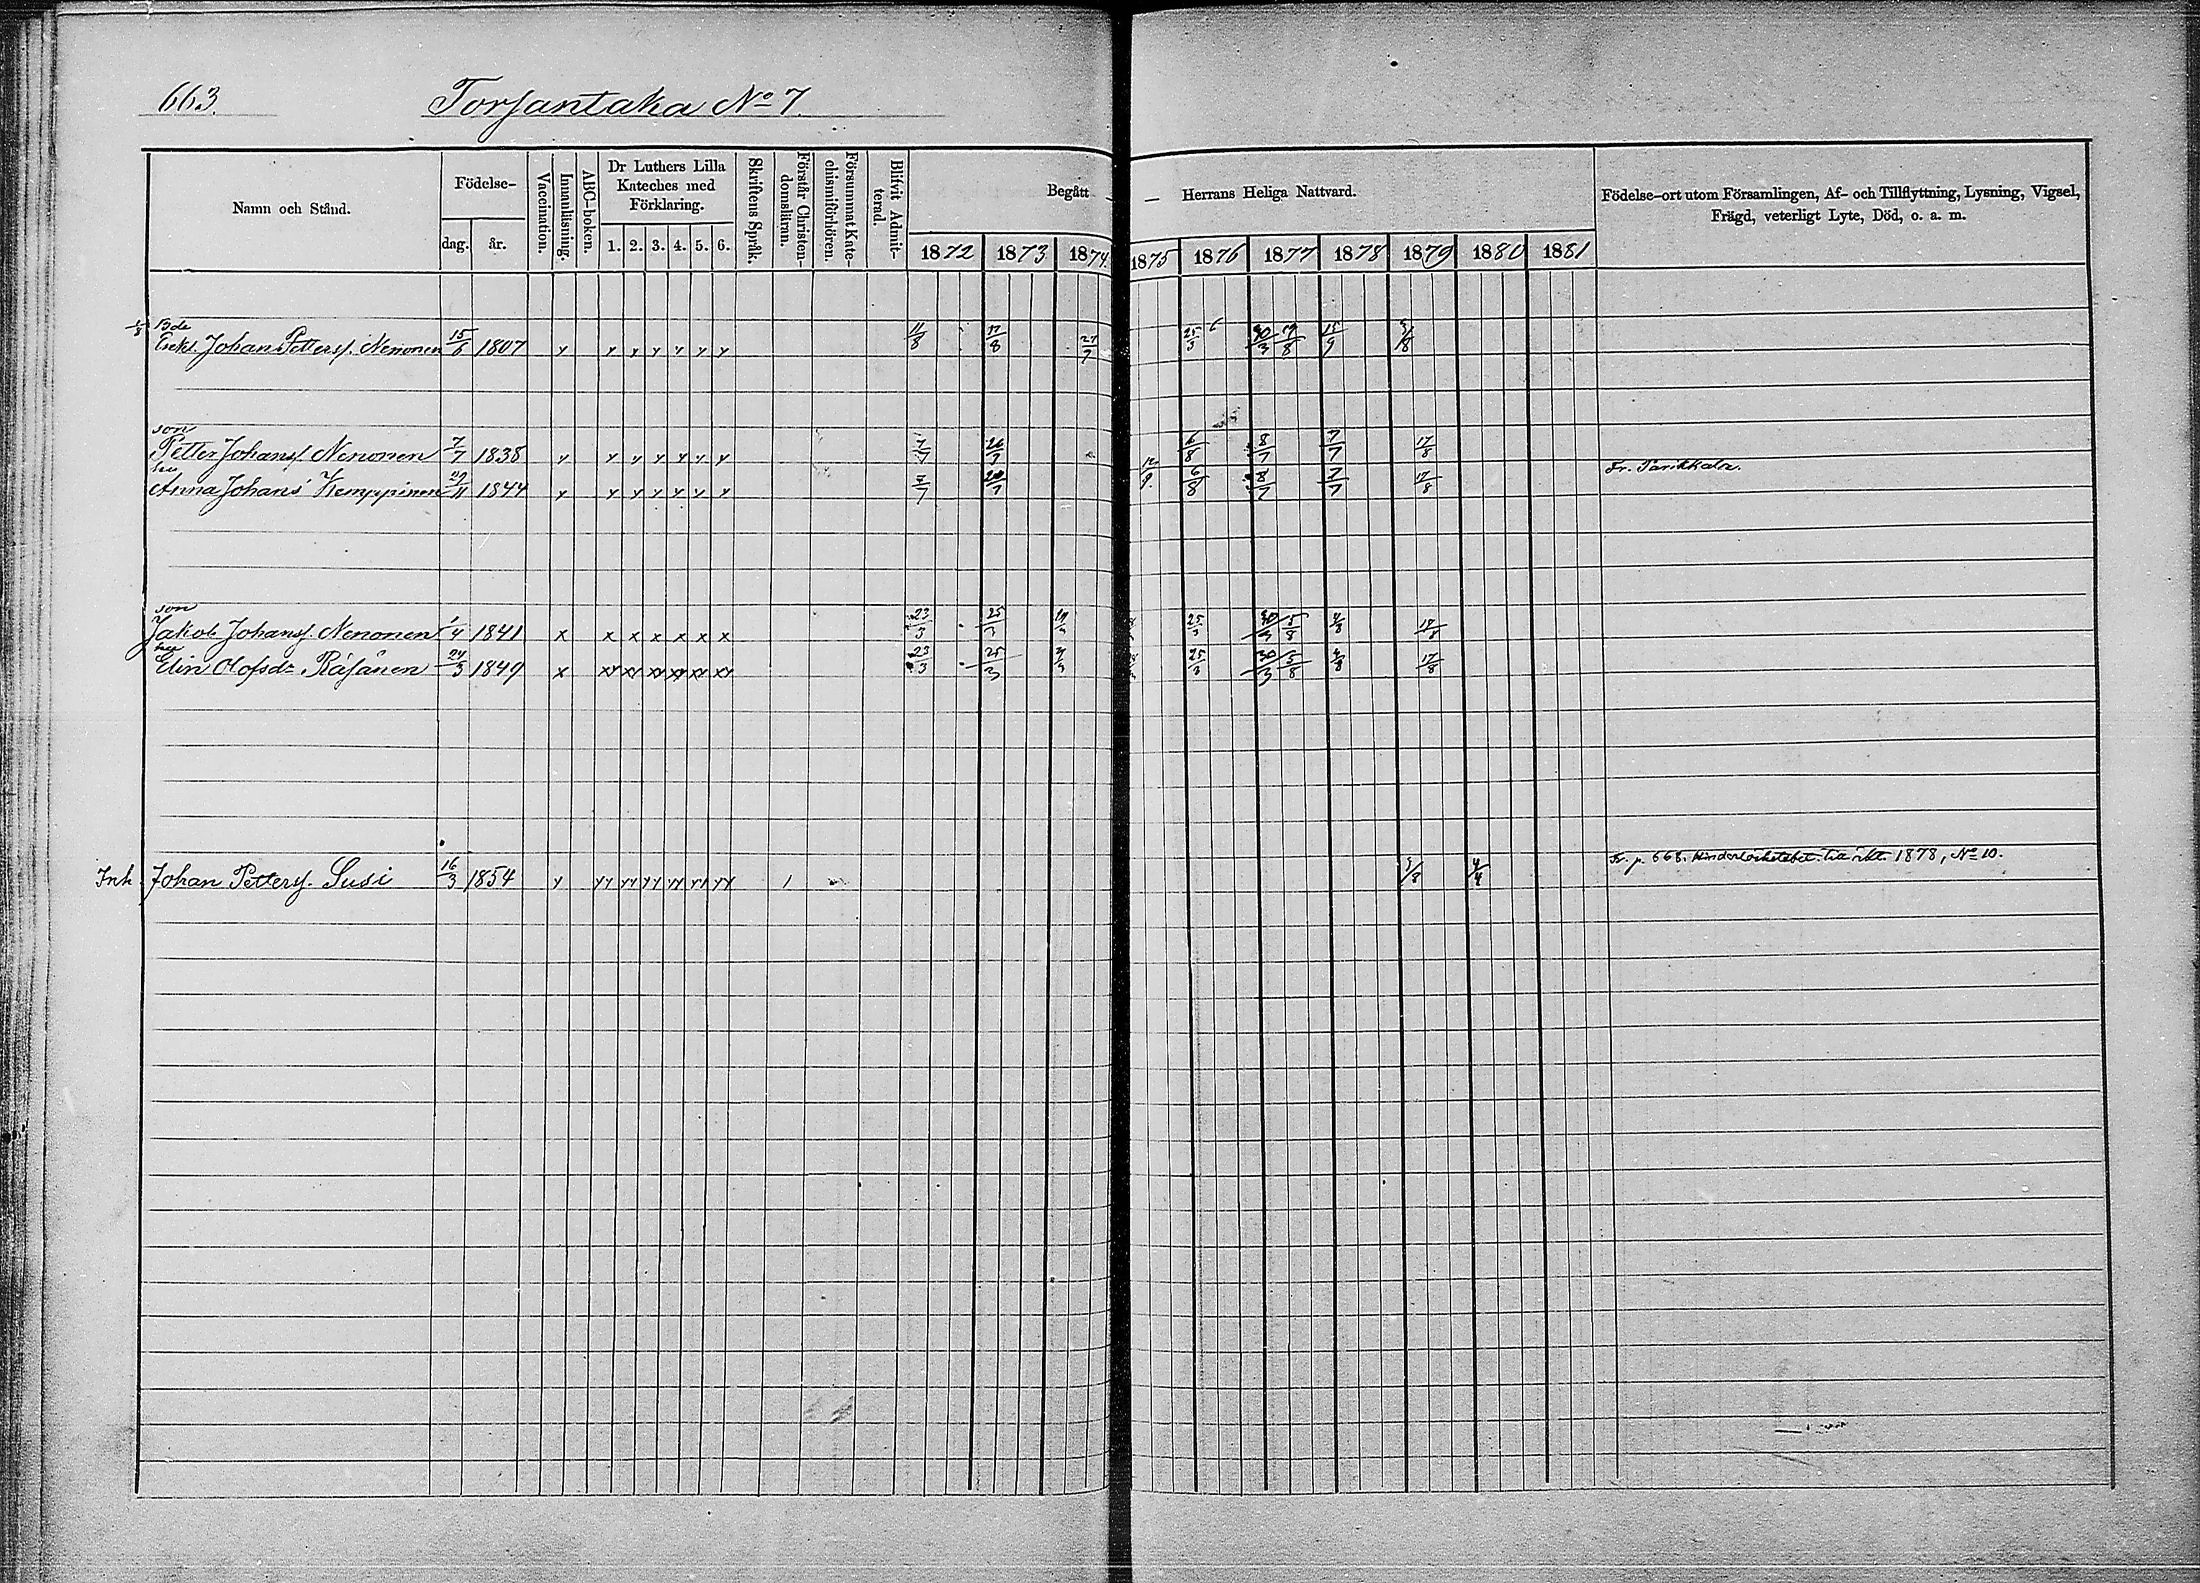 663. Torsantaka No 7.
Namn och Stånd.
Födelse-
dag. år.
Vaccination.
Innanläsning.
ABC-boken.
Dr Luthers Lilla
Kateches med
Förklaring.
1. 2. 3. 4. 5. 6.
Skriftens Språk.
Förstår Christen-
domsläran.
Försummat Kate-
chismiförhören.
Blifvit Admit-
terad.
Begått Herrans Heliga Nattvard.
1872 1873 1874. 1875 1876 1877 1878 1879 1880 1881
Födelse-ort utom Församlingen, Af- och Tillflyttning, Lysning, Vigsel,
Frägd, veterligt Lyte, Död, o. a. m.
1/8 Bde
Enkl. Johan Petterss. Nenonen 15/6 1807 y y y y y y y 11/8 17/8 27/7 25/3 6 30/3 19/8 15/9 3/8
son
Petter Johanss. Nenonen 7/7 1838 y y y y y y y 7/7 26/7 6/8 8/7 7/7 17/8
hu
Anna Johans Kemppinen 29/11 1844 y y y y y y y 7/7 26/7 6/8 8/7 7/7 17/8 Fr. Parikkala.
son
Jakob Johanss. Nenonen 1/4 1841 x x x x x x x 23/3 25/3 25/3 30/3 5/8 4/8 17/8
hu
Elin Olofsdr Räsänen 24/3 1849 x xy xy xy xy xy xy 23/3 25/3 25/3 30/3 5/8 4/8 17/8
Inh. Johan Petterss. Susi 16/3 1854 y yy yy yy yy yy yy 1 3/8 4/4 Fr. p. 668. 1878, No 10.